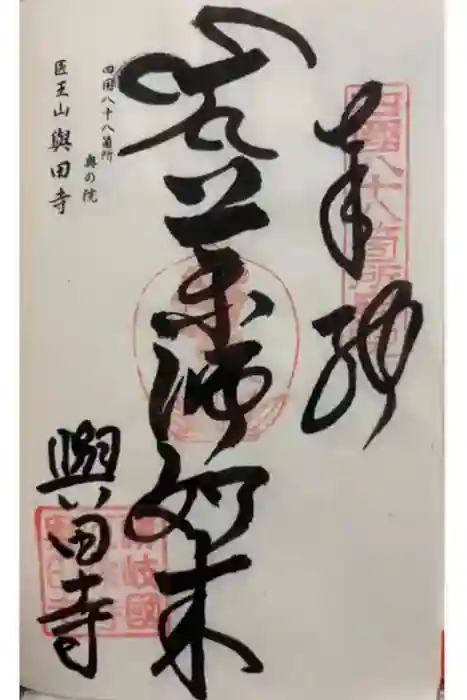 四國八十八箇所
奉納
薬師如来
讃岐國
與田寺
四国八十八箇所
奥の院
医王山 與田寺